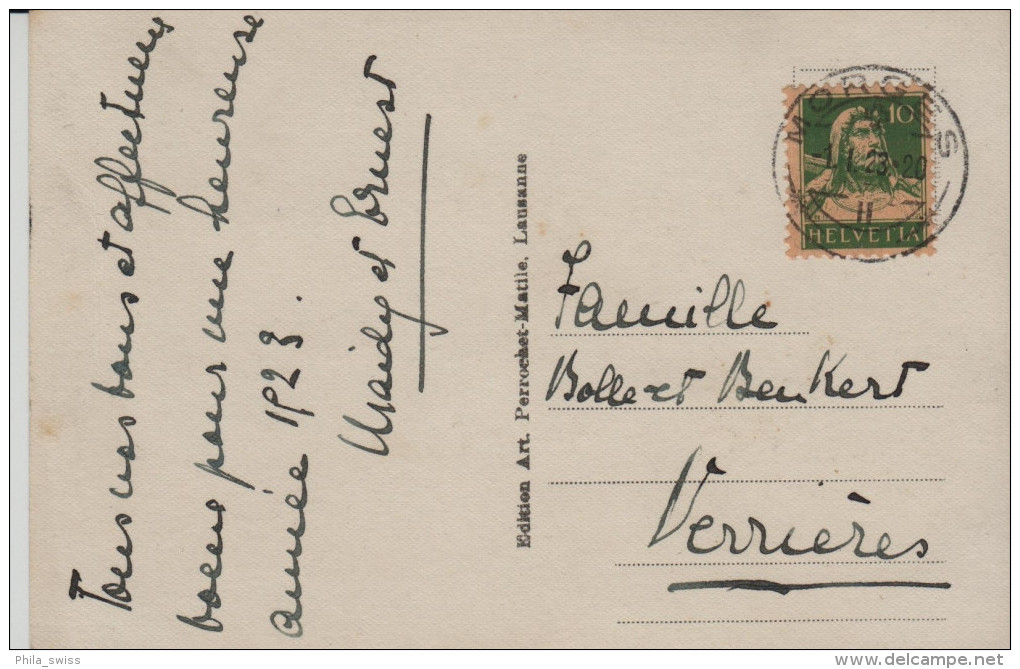 Tous nos bons et affectueux
vœux pour une heureuse
année 1923.
et Ernest
Edition Art. Perrochet-Matile, Lausanne
MORGES
1.I.23.20
10
HELVETIA
Famille
Bolle et Benkert
Verrières
Phila_swiss